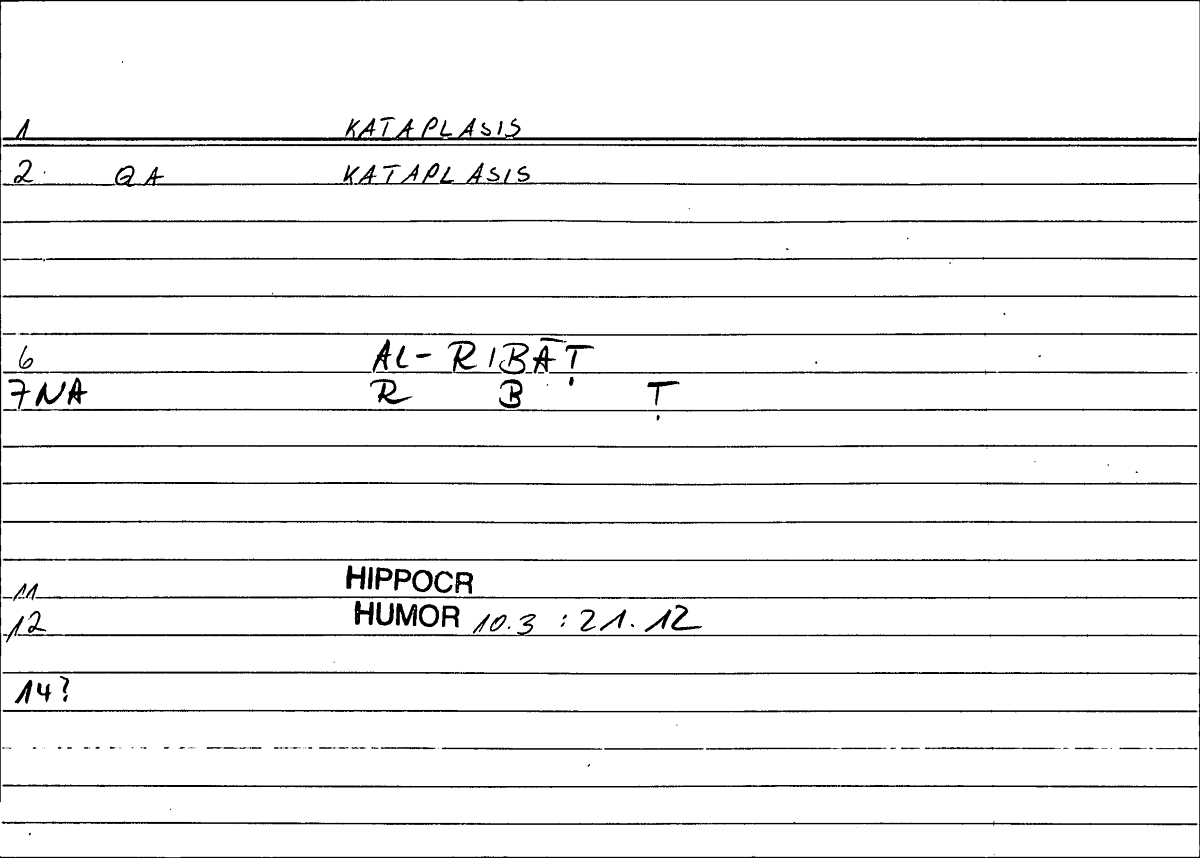 1 KATAPLASIS
2. QA KATAPLASIS
6 AL-RIBĀṬ
7NA R B Ṭ
11 HIPPOCR
12 HUMOR 10.3 : 21.12
14?